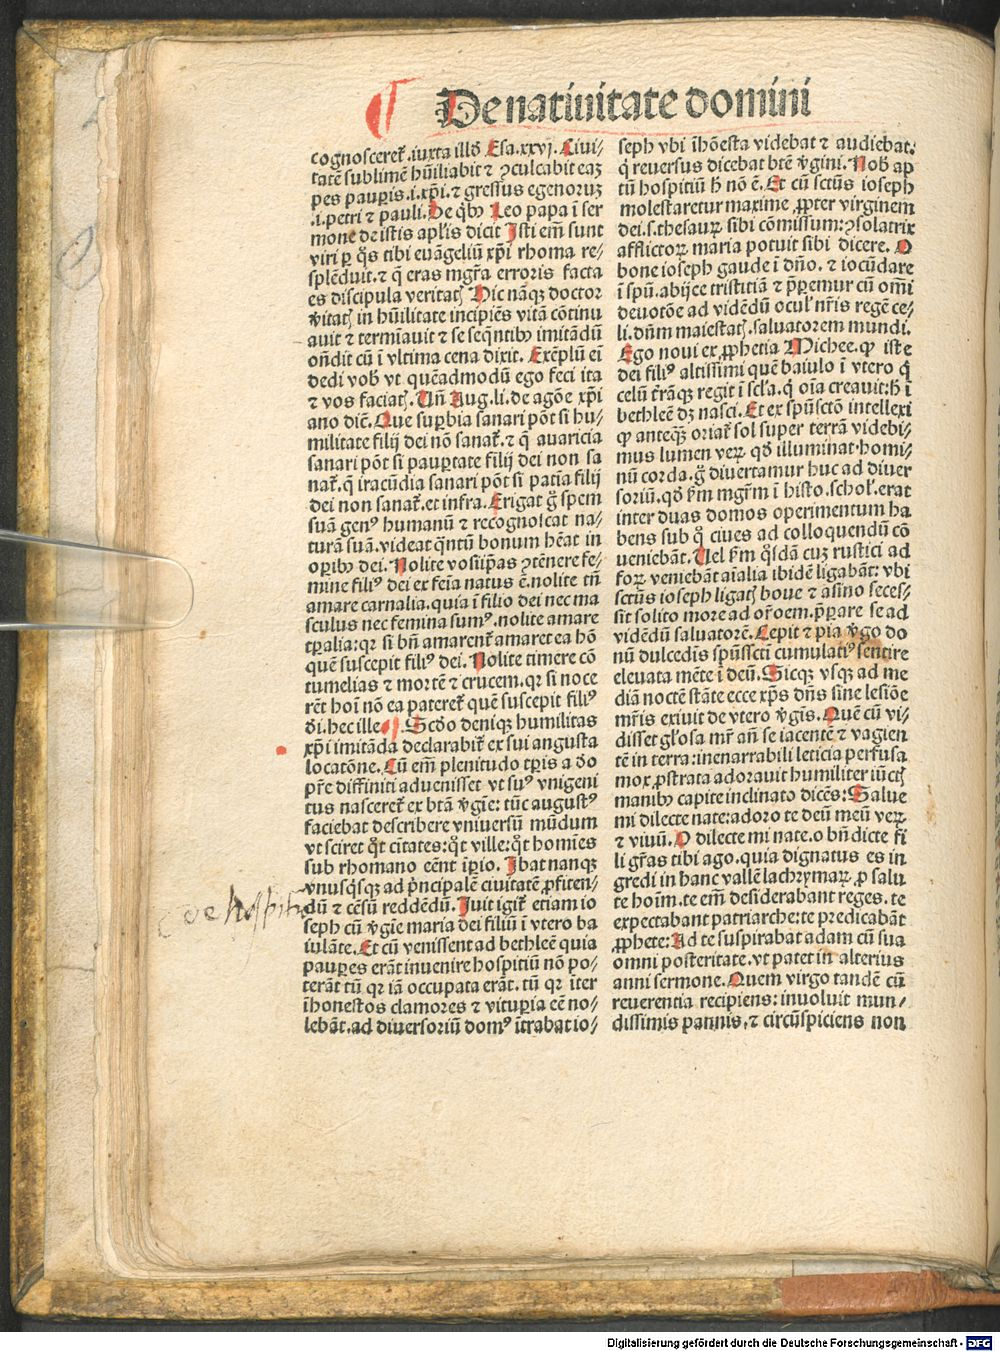 De natiuitate domini
cognosceret᷑ .iuxta illd̄ Esa.xxvj. Ciui⸗
tatē sublimē hūiliabit ⁊ ꝯculcabit eaꝫ
pes pauꝑis .i. xp̄i. ⁊ gressus egenoruꝫ
.i. petri ⁊ pauli. De qͥbꝰ Leo papa ī ser
mone de istis apl̄is dicit Isti em̄ sunt
viri ꝑ qͦs tibi euāgeliū xp̄i rhoma re⸗
splēduit. ⁊ q̄ eras mgr̄a erroris facta
es discipula veritatꝭ Hic nāqꝫ doctor
v̄itatꝭ in hūilitate incipiēs vitā cōtinu
auit ⁊ termīauit ⁊ se seqn̄tibꝰ imitādū
on̄dit cū ī vltima cena dixit. Exēplū ei̅
dedi vob̄ vt quēadmodū ego feci ita
⁊ vos faciatꝭ. Un̄ Aug. li. de agōe xp̄i
ano dic̄. Que suꝑbia sanari pōt si hu⸗
militate filij dei nō sanat᷑. ⁊ q̄ auaricia
sanari pōt si pauꝑtate filij dei non sa
nat᷑. q̄ iracūdia sanari pōt si patīa filij
dei non sanat᷑. et infra. Erigat g̊ spem
suā genꝰ humanū ⁊ recognoscat na⸗
turā suā. videat qn̄tū bonum hēat in
oꝑibꝰ dei. Nolite vosip̄as ꝯtēnere fe⸗
mine filiꝰ dei ex feīa natus ē. nolite tn̄
amare carnalia. quia ī filio dei nec ma
sculus nec femina sumꝰ. nolite amare
tꝑalia: qꝛ si bn̄ amarent᷑ amaret ea hō
quē suscepit filiꝰ dei. Nolite timere cō
tumelias ⁊ mortē ⁊ crucem. qꝛ si noce
rēt hoī nō ea pateret᷑ quē suscepit filiꝰ
di. hec ille. ¶ Scd̄o deniqꝫ humilitas
xp̄i imitāda declarabit᷑ ex sui angusta
locatōne. Cū em̄ plenitudo tꝑis a do
pr̄e diffiniti aduenisset vt suꝰ vnigeni
tus nasceret᷑ ex btā v̄gīe: tūc augustꝰ
faciebat describere vniuersū mūdum
vt sciret qͦt citates: qͦt ville: qͦt homīes
sub rhomano eēnt īꝑio. Ibat nanqꝫ
vnusqͥsqꝫ ad pͥncipalē ciuitatē ꝓfiten⸗
dū ⁊ cēsū reddēdū. Iuit igit᷑ etiam io
seph cū v̄gīe maria dei filiū ī vtero ba
iulāte. Et cū venissent ad bethleē quia
pauꝑes erāt inuenire hospitiū nō po⸗
terāt tū qꝛ iā occupata erāt. tū qꝛ iter
īhonestos clamores ⁊ vituꝑia eē no⸗
lebāt. ad diuersoriū domꝰ ītrabat io⸗
de hospitio
seph vbi īhōesta videbat ⁊ audiebat.
qͥ reuersus dicebat btē v̄gini. Nob̄ ap
tū hospitiū h̄ nō ē. Et cū sctūs ioseph
molestaretur maxime ꝓpter virginem
dei .s. thesauꝝ sibi cōmissum: ꝯsolatrix
afflictoꝝ maria potuit sibi dicere. O
bone ioseph gaude ī dn̄o. ⁊ iocūdare
ī spū. abijce tristitiā ⁊ p̄ꝑemur cū om̄i
deuotōe ad vidēdū oculꝭ nr̄is regē ce⸗
li. dn̄m maiestatꝭ. saluatorem mundi.
Ego noui ex ꝓphetia Michee. ꝙ iste
dei filiꝰ altissimi quē baiulo ī vtero qͥ
celū t̄rāqꝫ regit ī scl̄a. qͥ oīa creauit: h̄ ī
bethleē dꝫ nasci. Et ex spūsctō intellexi
ꝙ anteqꝫ̄ oriat᷑ sol super terrā videbi⸗
mus lumen veꝝ qd̄ illuminat homi⸗
nū corda. g̊ diuertamur huc ad diuer
soriū. qd̄ ẜm mgr̄m ī histo. schol̓. erat
inter duas domos operimentum ha
bens sub qͦ ciues ad colloquendū cō
ueniebāt. Uel ẜm qͦsdā cuꝫ rustici ad
foꝝ veniebāt aīalia ibidē ligabāt: vbi
sctūs ioseph ligatꝭ boue ⁊ asino seces⸗
sit solito more ad or̄oem. p̄ꝑare se ad
vidēdū saluatorē. Cepit ⁊ pia v̄go do
nū dulcedīs spūssctī cumulatiꝰ sentire
eleuata mēte ī deū. Sicqꝫ vsqꝫ ad me
diā noctē stāte ecce xp̄s dn̄s sine lesiōe
mr̄is exiuit de vtero v̄gīs. Quē cū vi⸗
disset gl̓osa mr̄ an̄ se iacentē ⁊ vagien
tē in terra: inenarrabili leticia perfusa
mox ꝓstrata adorauit humiliter iūctꝭ
manibꝰ capite inclinato dicēs: Salue
mi dilecte nate: adoro te deū meū veꝝ
⁊ viuū. O dilecte mi nate. o bn̄dicte fi
li gr̄as tibi ago. quia dignatus es in
gredi in hanc vallē lachrymaꝝ ꝓ salu
te hoīm. te em̄ desiderabant reges. te
expectabant patriarche: te predicabāt
ꝓphete: Ad te suspirabat adam cū sua
omni posteritate. vt patet in alterius
anni sermone. Quem virgo tandē cū
reuerentia recipiens: inuoluit mun⸗
dissimis pannis. ⁊ circūspiciens non
Digitalisierung gefördert durch die Deutsche Forschungsgemeinschaft - DFG